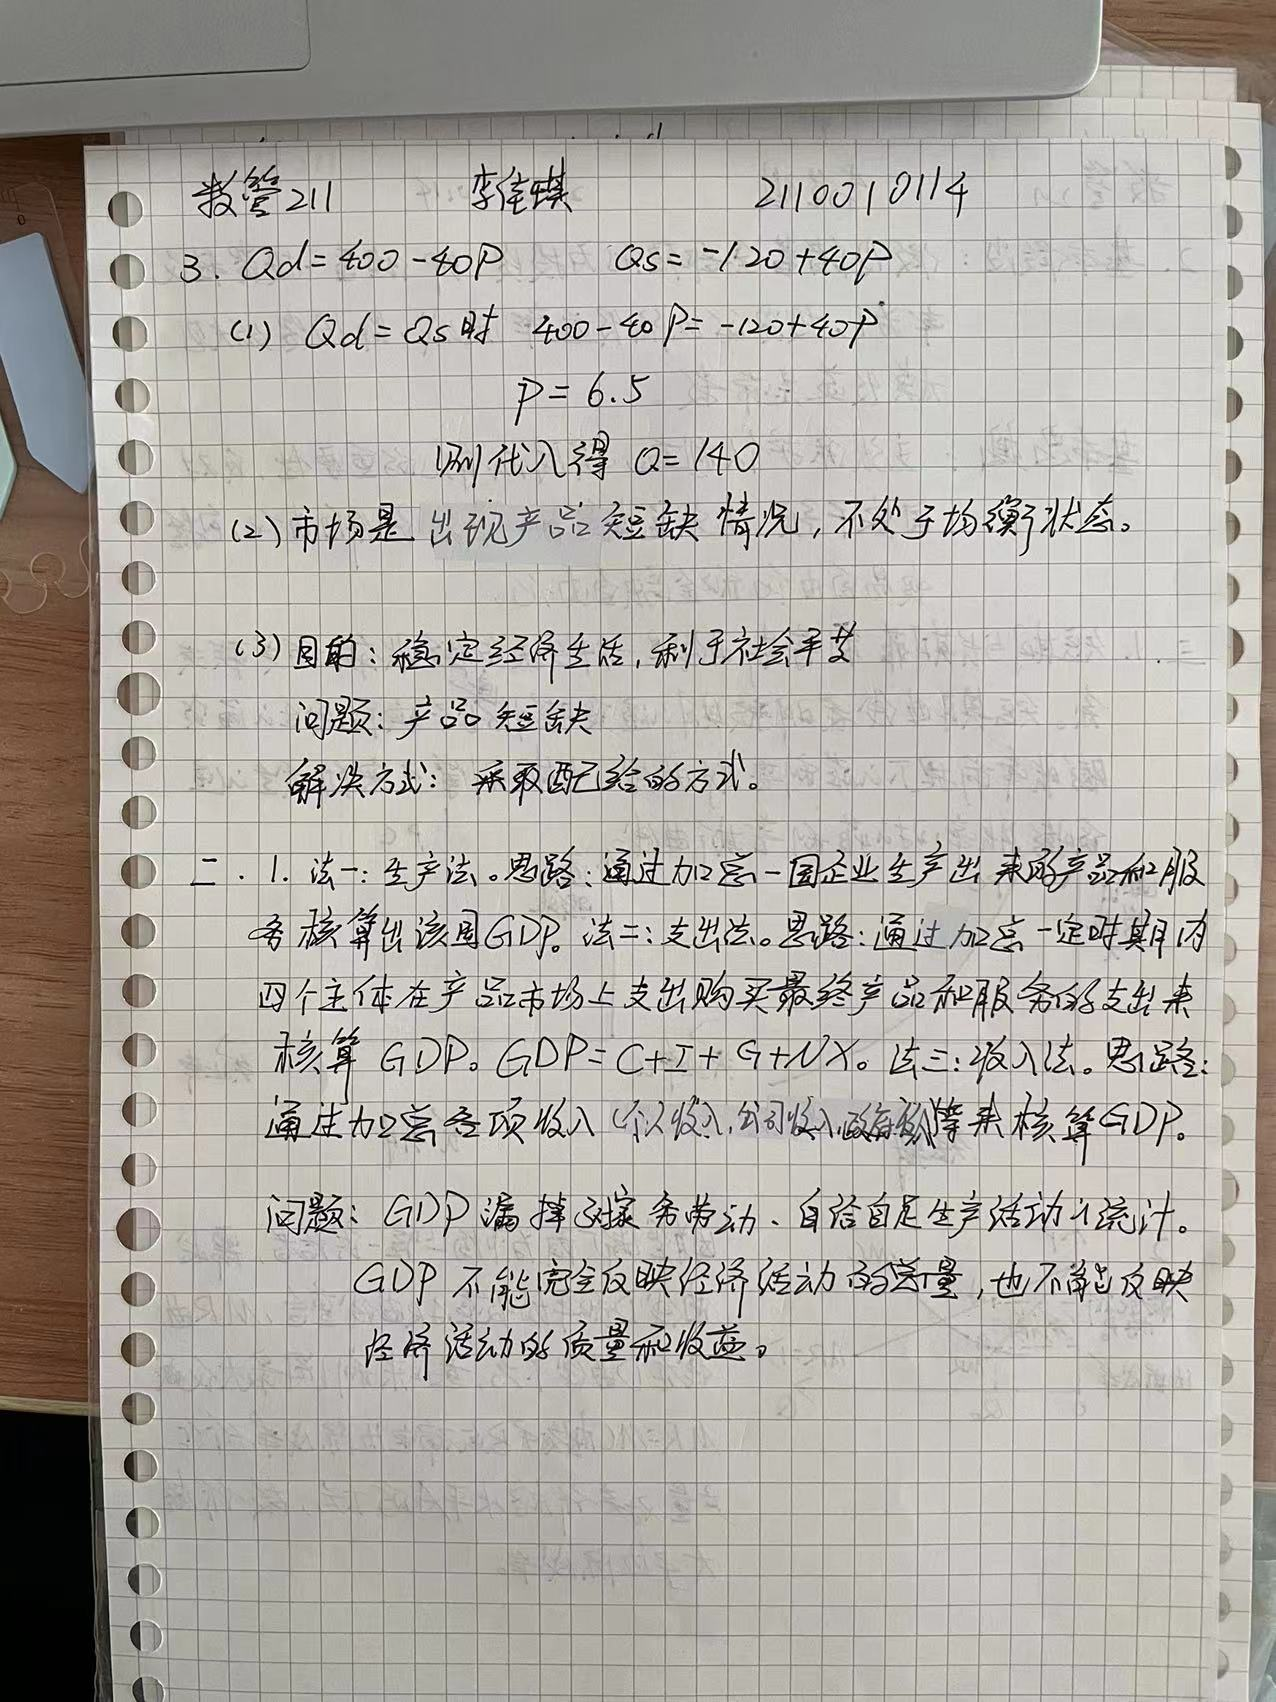 教管211 李佳蝶 2110010114
3. Qd=400-40P Qs=-120+40P
(1) Qd=Qs时 400-40P=-120+40P
P=6.5
则代入得 Q=140
(2)市场是出现产品短缺情况,不处于均衡状态。
(3)目的:稳定经济生活,利于社会平
问题:产品短缺
解决方式:采取配给的方式。
二.1.法一:生产法。思路:通过加总一国企业生产出来的产品和服
务核算出该国GDP。法二:支出法。思路:通过加总一定时期内
四个主体在产品市场上支出购买最终产品和服务的支出来
核算GDP。GDP=C+I+G+NX。法三:收入法。思路:
通过加总各项收入(个人收入,公司收入,政府收入)等来核算GDP。
问题:GDP漏掉了家务劳动、自给自足生产活动的统计。
GDP不能完全反映经济活动的总量,也不能反映
经济活动的质量和收益。